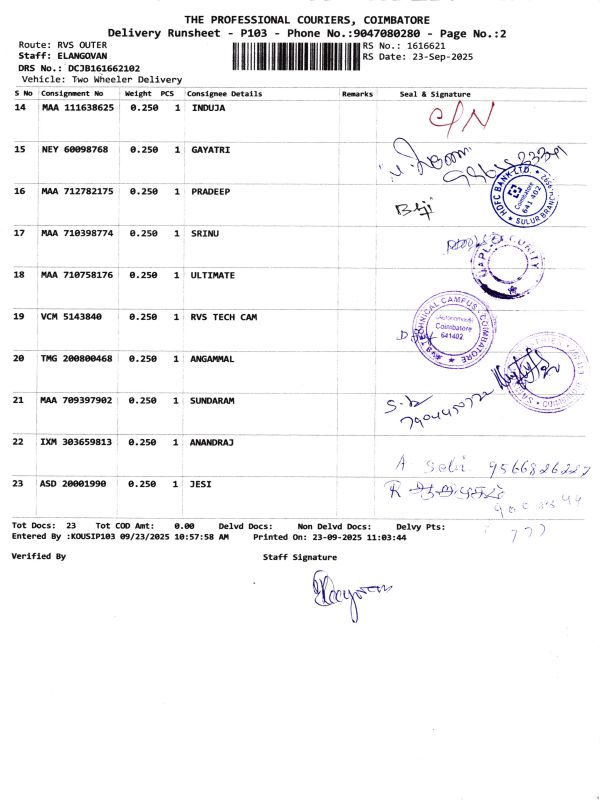 THE PROFESSIONAL COURIERS, COIMBATORE
Delivery Runsheet - P103 - Phone No.:9047080280 - Page No.:2
Route: RVS OUTER RS No.: 1616621
Staff: ELANGOVAN RS Date: 23-Sep-2025
DRS No.: DCJB161662102
Vehicle: Two Wheeler Delivery
S No Consignment No Weight PCS Consignee Details Remarks Seal & Signature
14 MAA 111638625 0.250 1 INDUJA C/N
15 NEY 60098768 0.250 1 GAYATRI
16 MAA 712782175 0.250 1 PRADEEP
HDFC BANK LTD.
Coimbatore
641 402
SULUR BRANCH
17 MAA 710398774 0.250 1 SRINU
18 MAA 710758176 0.250 1 ULTIMATE
19 VCM 5143840 0.250 1 RVS TECH CAM
RVS TECHNICAL CAMPUS - COIMBATORE
(Autonomous)
Coimbatore
641402
20 TMG 200800468 0.250 1 ANGAMMAL
21 MAA 709397902 0.250 1 SUNDARAM
22 IXM 303659813 0.250 1 ANANDRAJ
A Selvi
23 ASD 20001990 0.250 1 JESI
Tot Docs: 23 Tot COD Amt: 0.00 Delvd Docs: Non Delvd Docs: Delvy Pts:
Entered By :KOUSIP103 09/23/2025 10:57:58 AM Printed On: 23-09-2025 11:03:44
Verified By Staff Signature